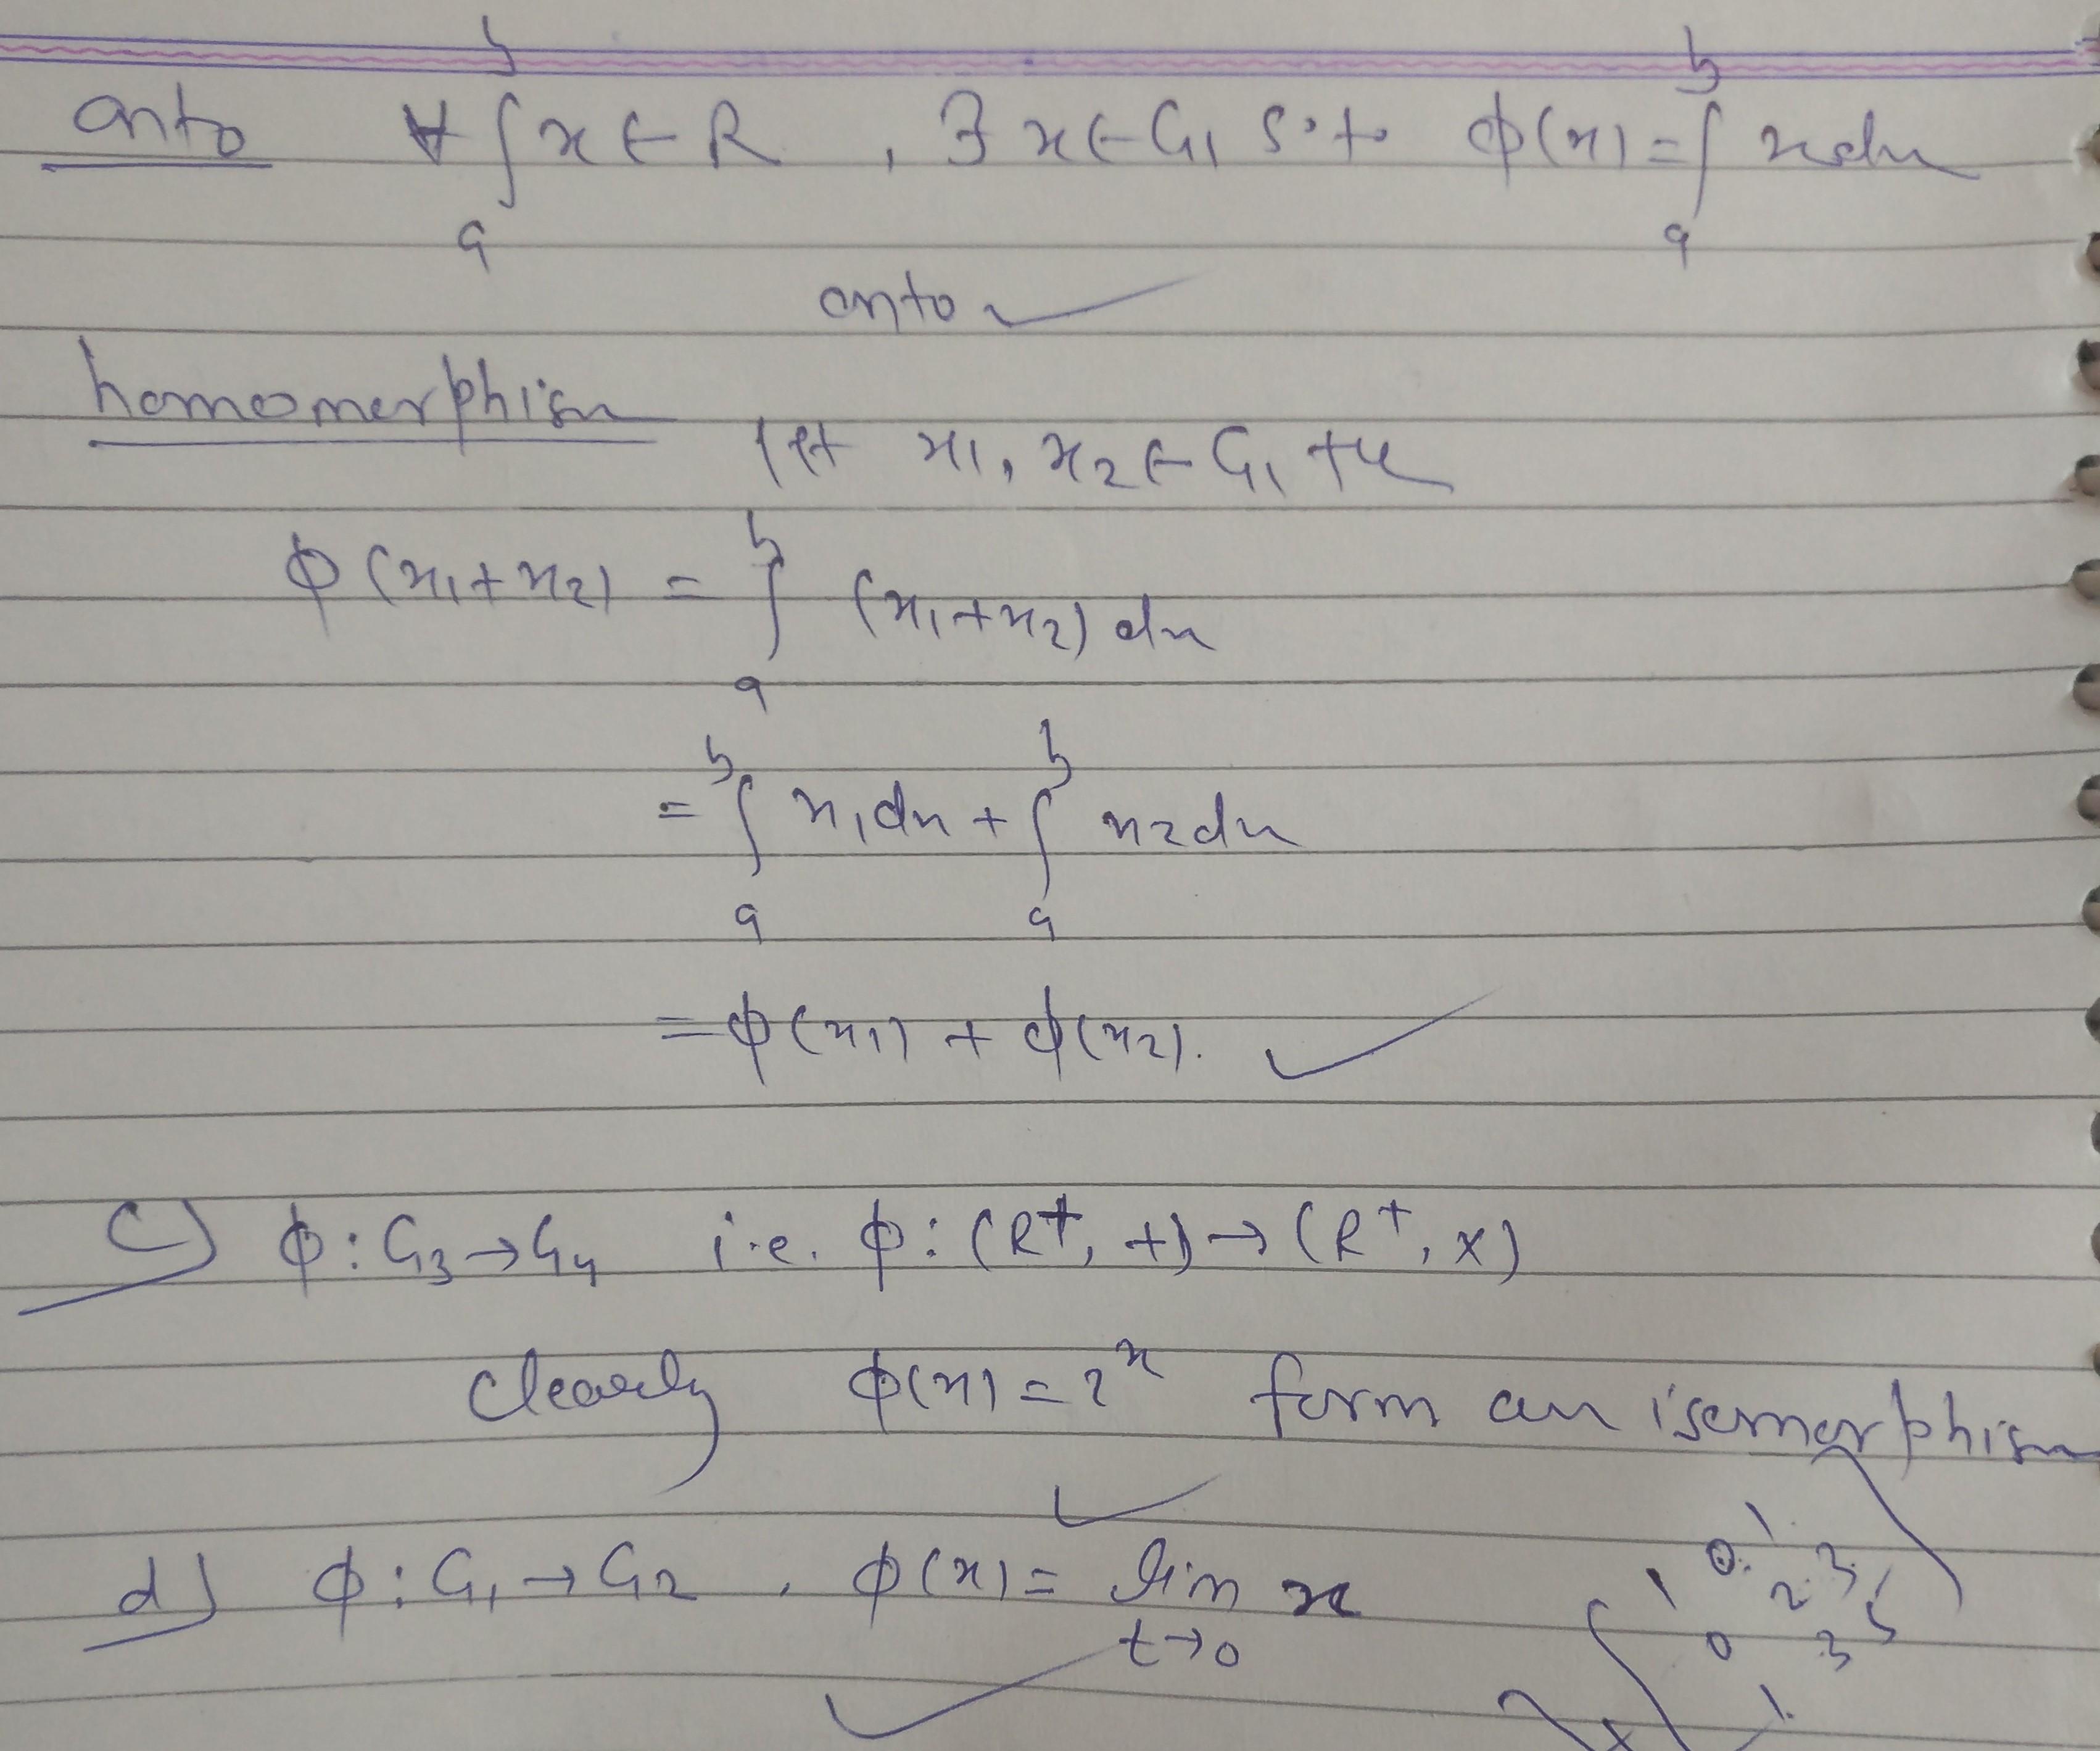 onto ∀ ∫_a^b x ∈ R , ∃ x ∈ G1 s.t. ϕ(x) = ∫_a^b x dx
onto ✓
homomorphism let x1, x2 ∈ G1 then
ϕ(x1+x2) = ∫_a^b (x1+x2) dx
= ∫_a^b x1 dx + ∫_a^b x2 dx
= ϕ(x1) + ϕ(x2). ✓
c) ϕ: G3 → G4 i.e. ϕ: (R+, +) → (R+, ×)
clearly ϕ(x) = 2^x form an isomorphism
✓
d) ϕ: G1 → G2 . ϕ(x) = lim_{t→0} x
✓